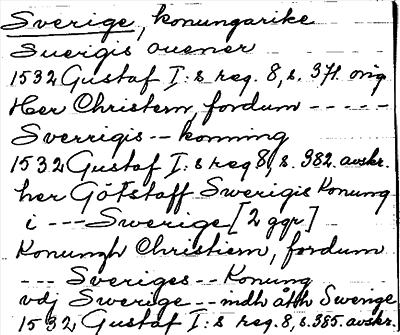 Sverige, konungarike
Suerigis ouener
1532 Gustaf I:s reg. 8, s. 371. orig.
Her Christiern, fordum - - - - -
Sverrigis -- konning
1532 Gustaf I:s reg 8, s. 382. avskr.
her Götstaff Swerigis Konung
i --- Swerige [2 ggr]
Konungh Christiern, fordum
--- Sveriges -- Konung
vdj Swerige -- indh åth Swerige
1532 Gustaf I:s reg. 8, s. 385. avskr.